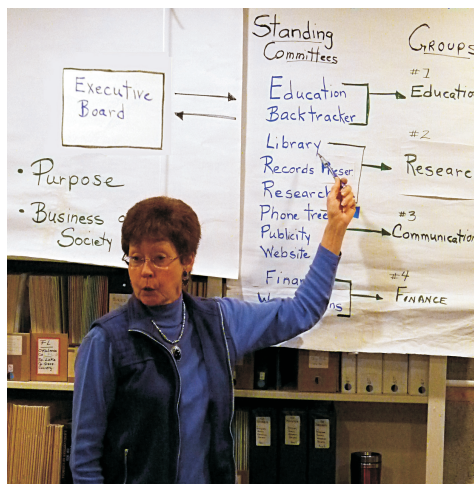 Executive
Board
• Purpose
• Business
Society
Standing
Committees
Education
Backtracker
Library
Records
Research
Phone tree
Publicity
Website
GROUPS
#1
Education
#2
Research
#3
Communication
#4
FINANCE
FL